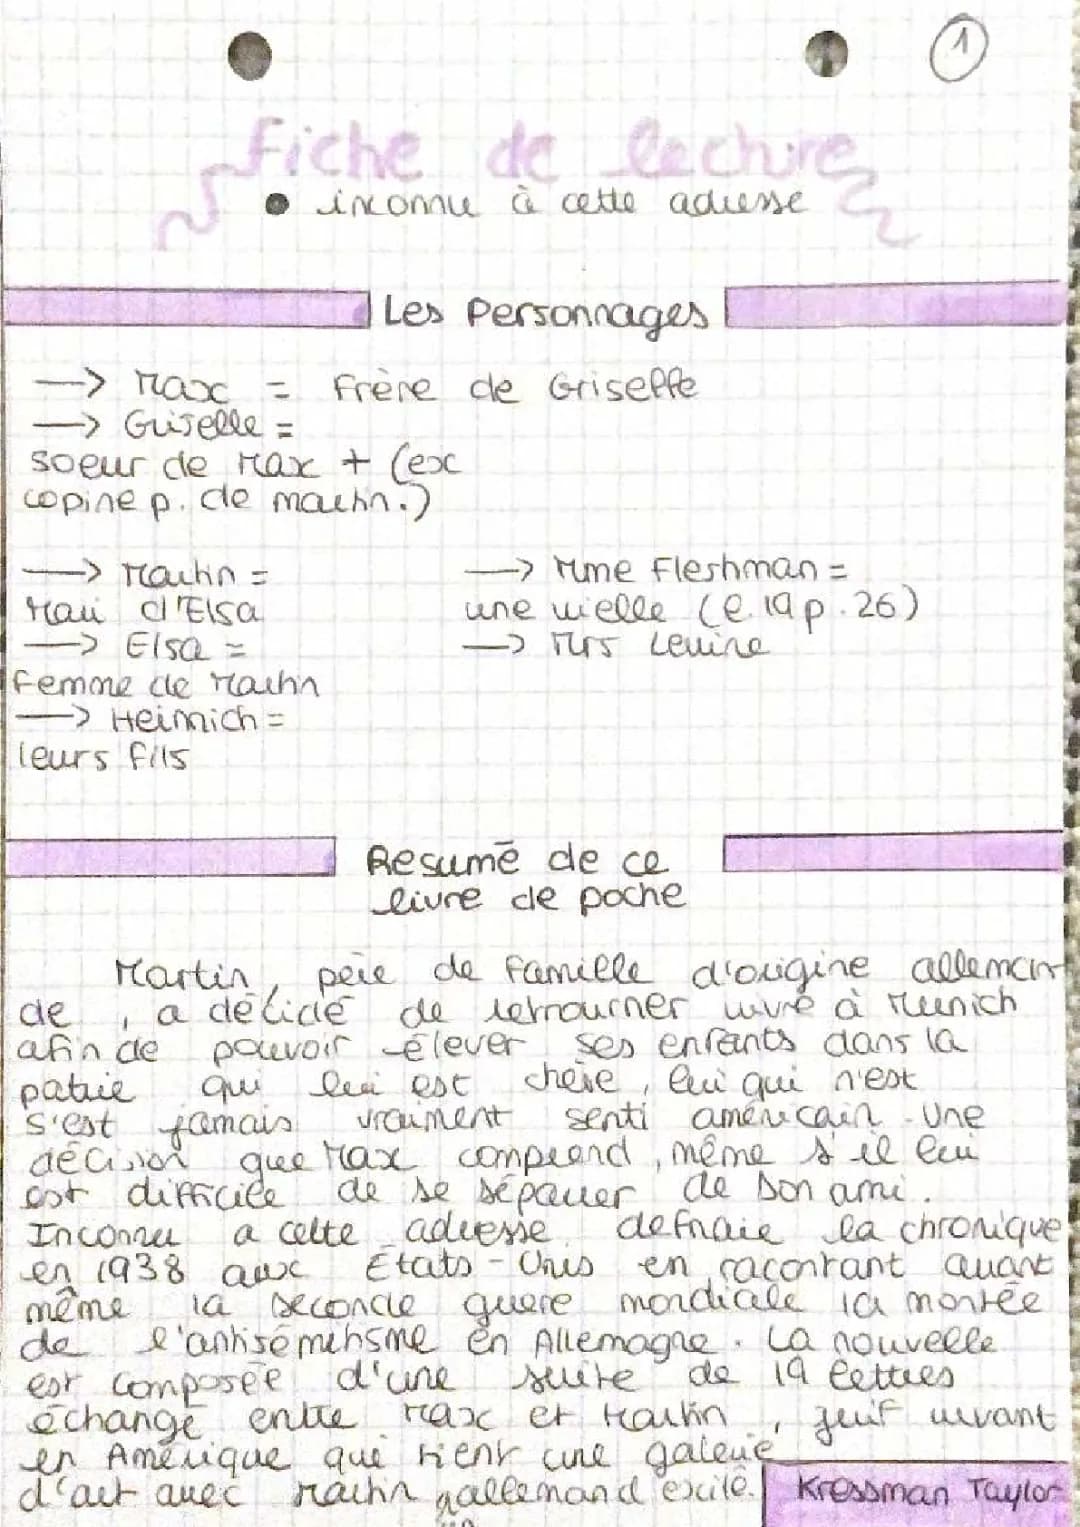 1
Fiche de lecture
• inconnu à cette adresse
Les Personnages
—> Max = Frère de Griselle
—> Griselle =
soeur de Max + (ex
copine p. de martin.)
—> Martin =
Mari d'Elsa
—> Elsa =
Femme de Martin
—> Heinrich =
leurs fils
—> Mme Fleshman =
une vielle (l. 19 p. 26)
—> Mrs Levine
Resumé de ce
livre de poche
Martin, père de famille d'origine alleman
de, a décidé de retrourner vivre à Munich
afin de pouvoir élever ses enfants dans la
patrie qui lui est chère, lui qui n'est
s'est jamais vraiment senti américain. Une
décision que Max comprend, même s'il lui
est difficile de se séparer de son ami.
Inconnu a cette adresse defraie la chronique
en 1938 aux États-Unis en racontant avant
même la seconde guere mondiale la montée
de l'antisémitisme en Allemagne. La nouvelle
est composée d'une suite de 19 lettres
échangé entre Max et Martin, juif vivant
en Amérique qui tient une galerie
d'art avec Martin, allemand exilé.
un
Kressman Taylor